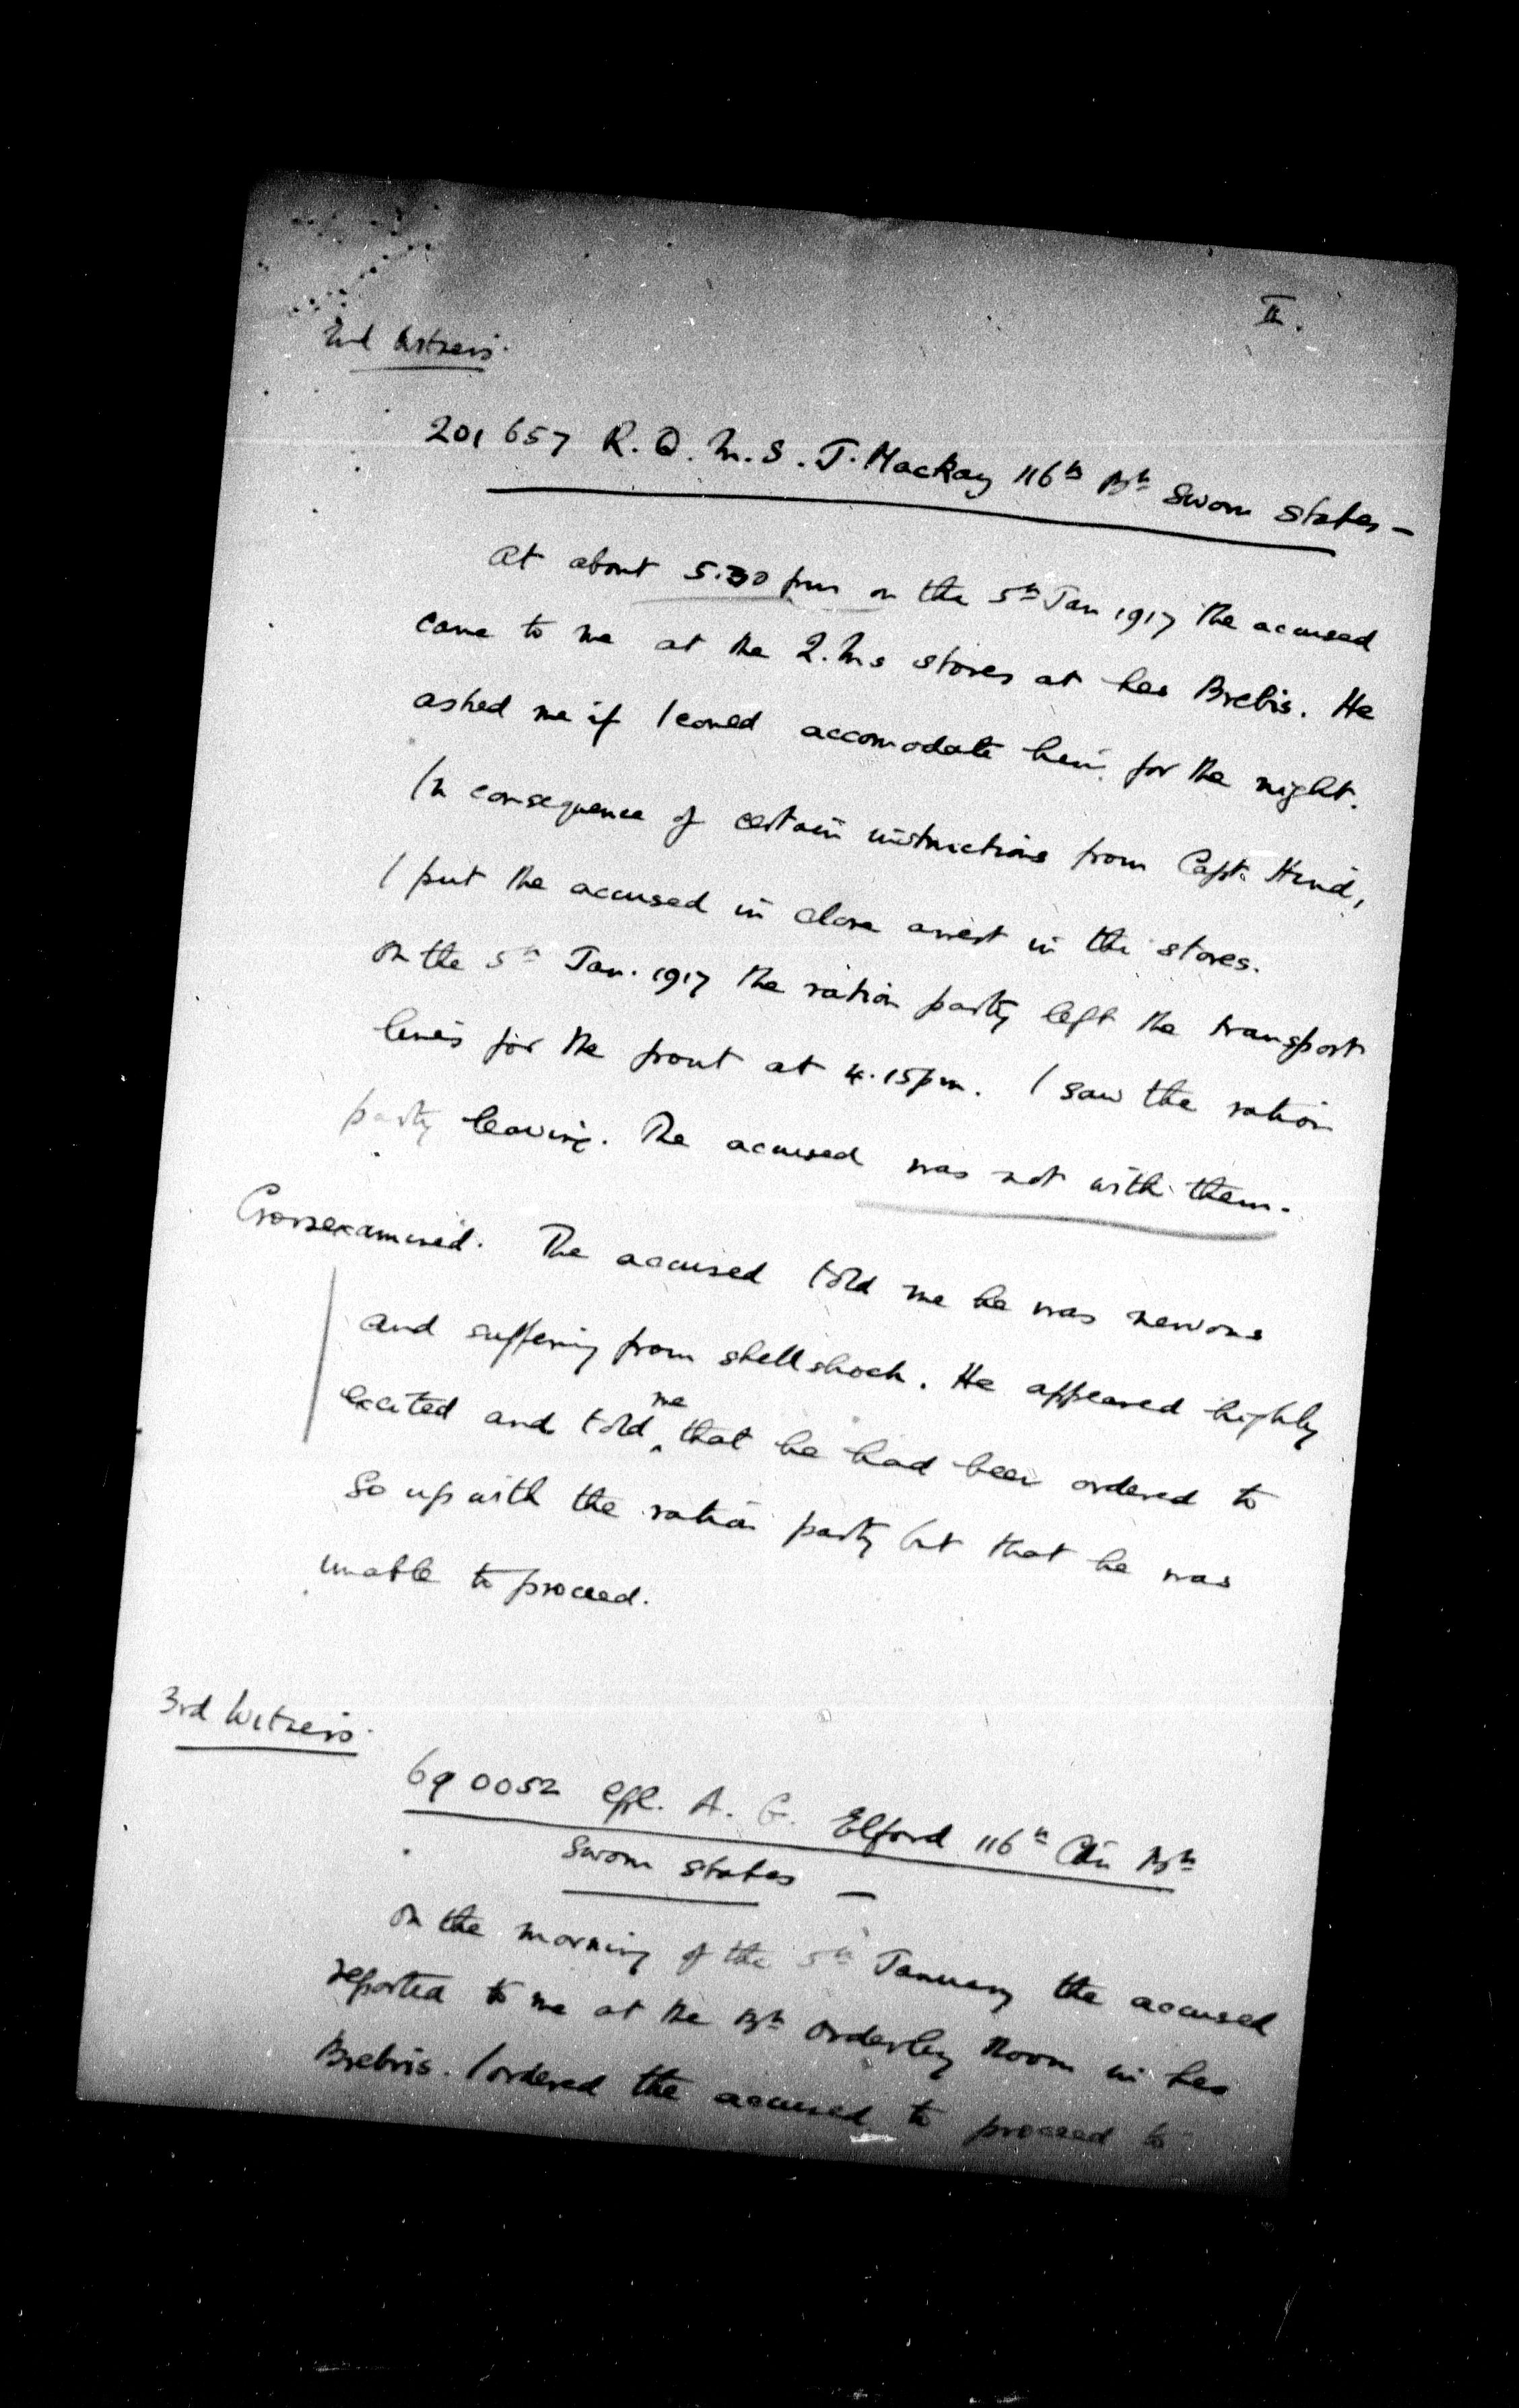 II.
2nd Witness.
201657 R.Q.M.S. J. Mackay 116th Bn Sworn States –
At about 5.30 pm on the 5th Jan 1917 the accused
came to me at the Q.M.s stores at Les Brebis. He
asked me if I could accomodate him for the night.
In consequence of certain instructions from Capt. Hind,
I put the accused in close arrest in the stores.
On the 5th Jan. 1917 the ration party left the transport
lines for the front at 4.15pm. I saw the ration
party leaving. The accused was not with them.
Crossexamined. The accused told me he was nervous
and suffering from shellshock. He appeared highly
excited and told me that he had been ordered to
go up with the ration party but that he was
unable to proceed.
3rd Witness.
690052 Cpl. A. G. Elford 116th Cdn Bn
Sworn states –
On the morning of the 5th January the accused
reported to me at the Bn Orderley Room in Les
Brebris. I ordered the accused to proceed to